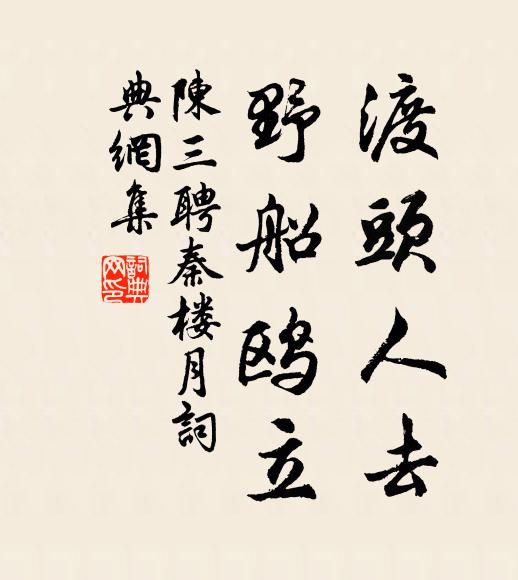 渡頭人去
野船鸥立
陳三聘秦楼月詞
典網集
詞典
网印